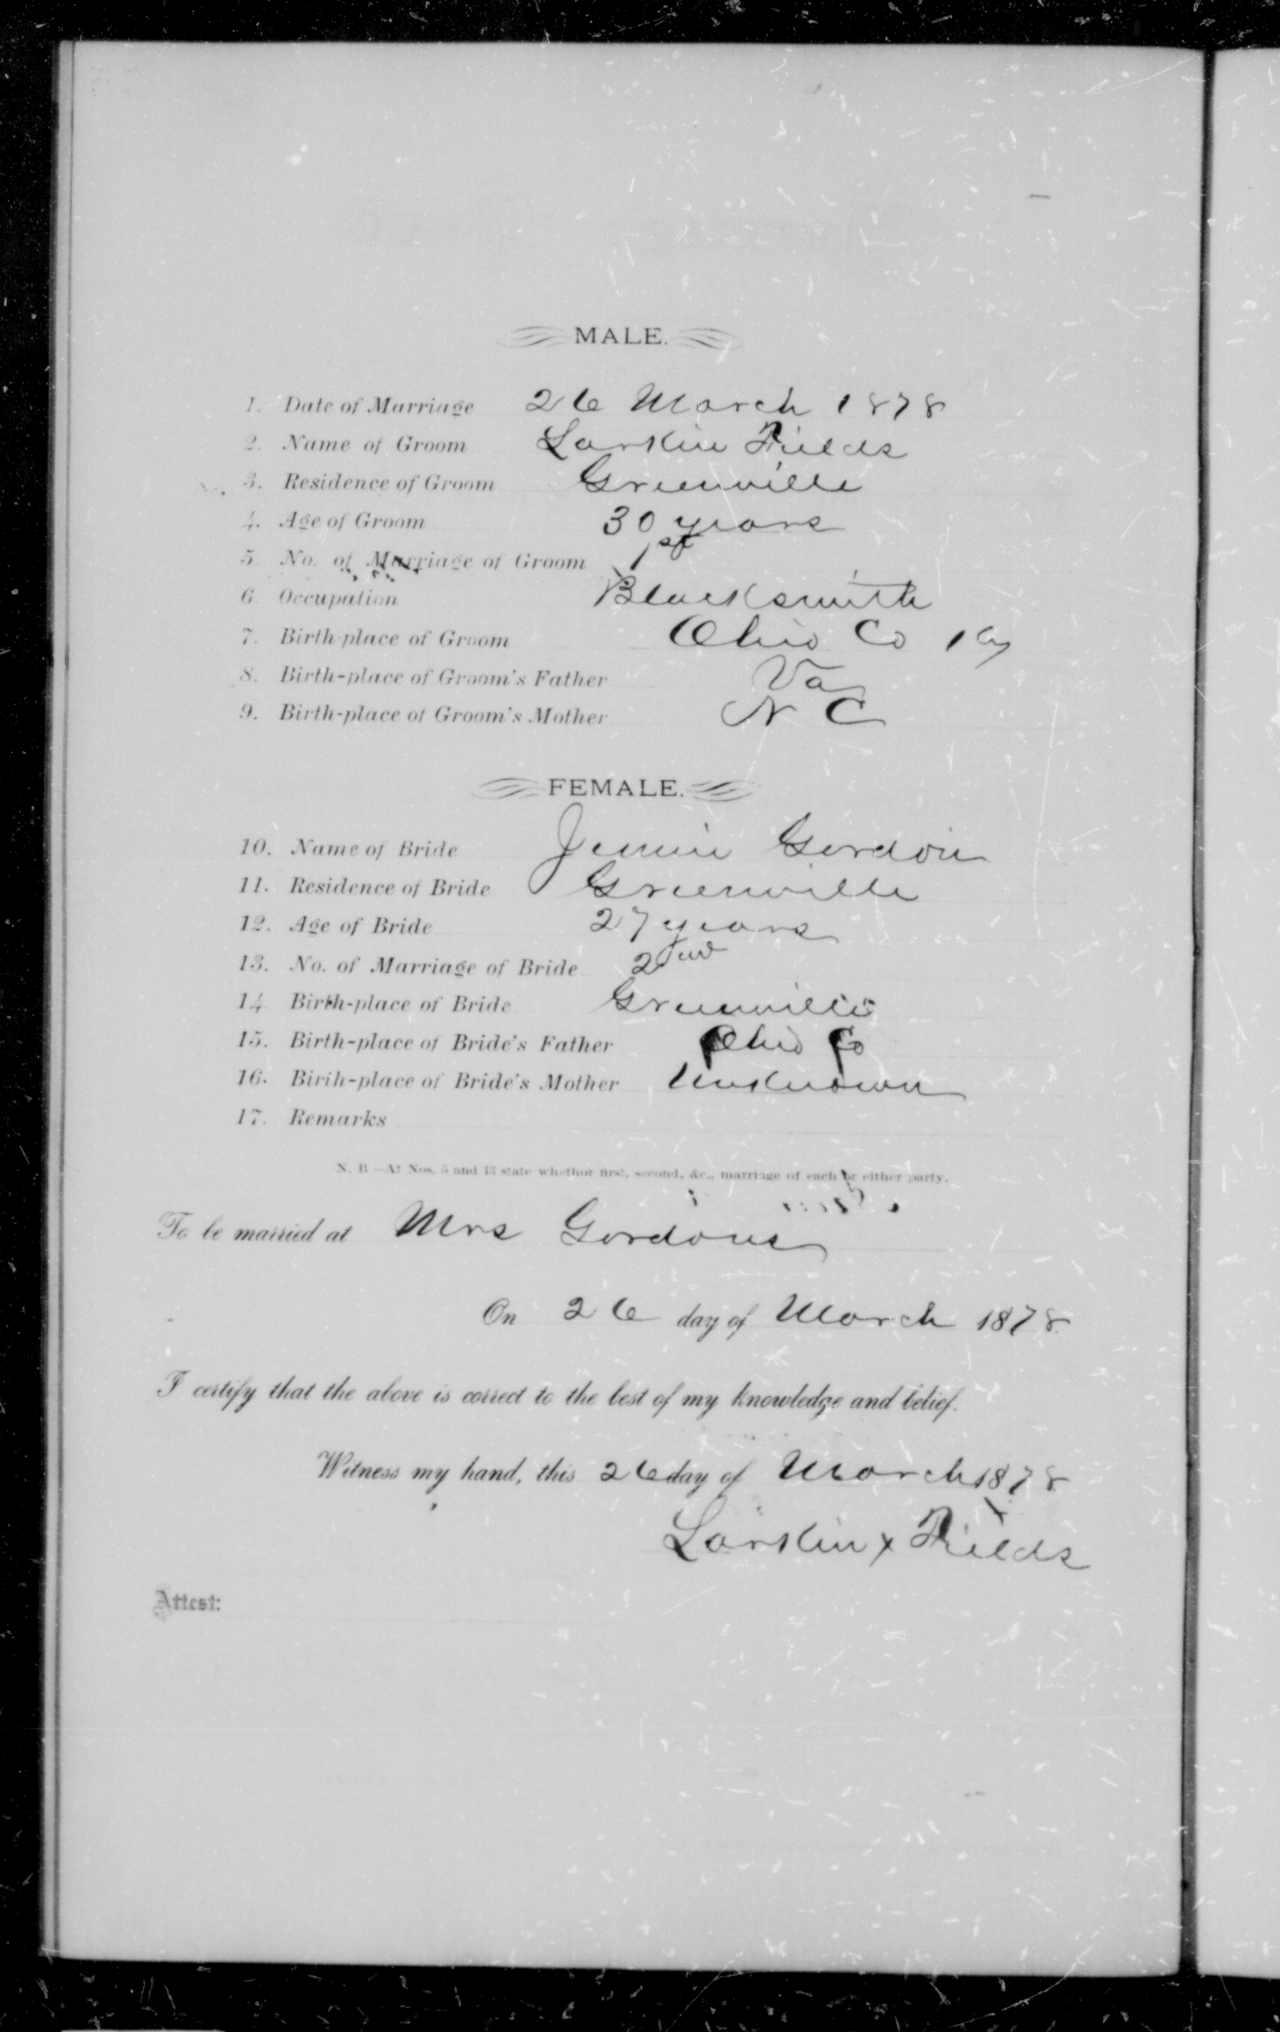 MALE.
1. Date of Marriage 26 March 1878
2. Name of Groom Larkin Fields
3. Residence of Groom Greenville
4. Age of Groom 30 years
5 No. of Marriage of Groom 1st
6. Occupation Blacksmith
7. Birth-place of Groom Ohio Co Ky
8. Birth-place of Groom's Father Va
9. Birth-place of Groom's Mother N C
FEMALE.
10. Name of Bride Jennie Gordon
11. Residence of Bride Greenville
12. Age of Bride 27 years
13. No. of Marriage of Bride 2nd
14 Birth-place of Bride Greenville
15. Birth-place of Bride's Father Ohio Co
16. Birih-place of Bride's Mother Unknown
17. Remarks
N. B.—At Nos. 5 and 13 state whethor first, second, &c., marriage of each or either party.
To be married at Mrs Gordons
On 26 day of March 1878
I certify that the above is correct to the best of my knowledge and belief.
Witness my hand, this 26 day of March 1878
Larkin x Fields
Attest: